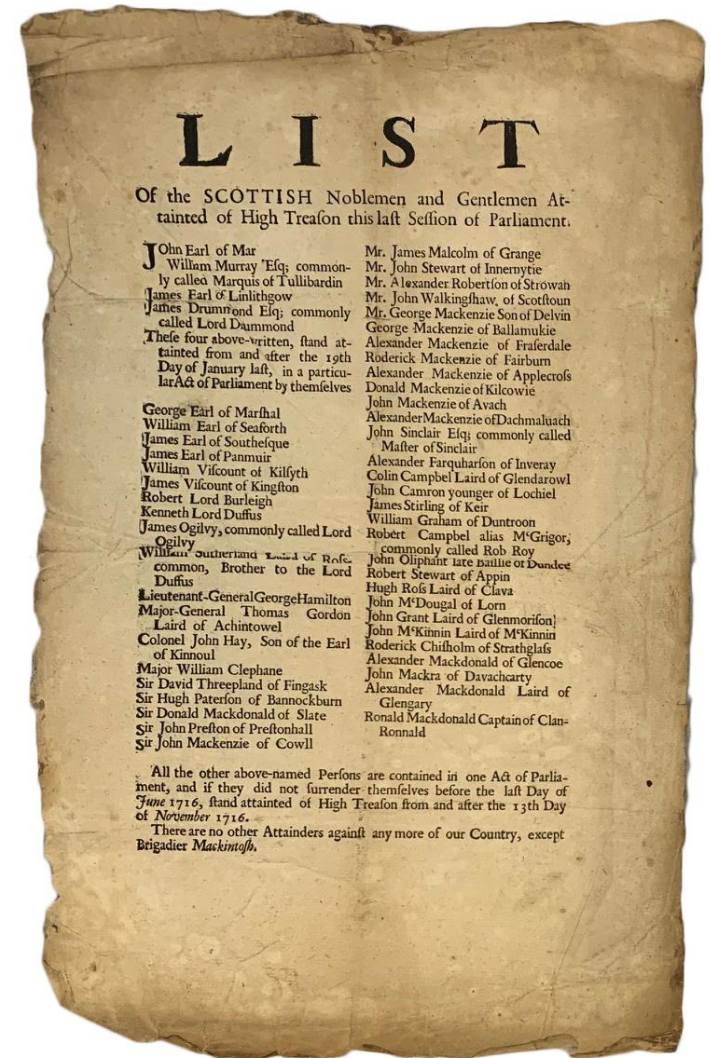 LIST
Of the SCOTTISH Noblemen and Gentlemen At-
tainted of High Treaſon this laſt Seſſion of Parliament.
JOhn Earl of Mar
William Murray Eſq; common-
ly called Marquis of Tullibardin
James Earl of Linlithgow
James Drummond Eſq; commonly
called Lord Daummond
Theſe four above-written, ſtand at-
tainted from and after the 19th
Day of January laſt, in a particu-
lar Act of Parliament by themſelves
George Earl of Marſhal
William Earl of Seaforth
James Earl of Southeſque
James Earl of Panmuir
William Viſcount of Kilſyth
James Viſcount of Kingſton
Robert Lord Burleigh
Kenneth Lord Duffus
James Ogilvy, commonly called Lord
Ogilvy
William Sutherland Laird of Roſe-
common, Brother to the Lord
Duffus
Lieutenant-General George Hamilton
Major-General Thomas Gordon
Laird of Achintowel
Colonel John Hay, Son of the Earl
of Kinnoul
Major William Clephane
Sir David Threepland of Fingask
Sir Hugh Paterſon of Bannockburn
Sir Donald Mackdonald of Slate
Sir John Preſton of Preſtonhall
Sir John Mackenzie of Cowll
Mr. James Malcolm of Grange
Mr. John Stewart of Innernytie
Mr. Alexander Robertſon of Strowan
Mr. John Walkingſhaw, of Scotſtoun
Mr. George Mackenzie Son of Delvin
George Mackenzie of Ballamukie
Alexander Mackenzie of Fraſerdale
Roderick Mackenzie of Fairburn
Alexander Mackenzie of Applecroſs
Donald Mackenzie of Kilcowie
John Mackenzie of Avach
Alexander Mackenzie of Dachmaluach
John Sinclair Eſq; commonly called
Maſter of Sinclair
Alexander Farquharſon of Inveray
Colin Campbel Laird of Glendarowl
John Camron younger of Lochiel
James Stirling of Keir
William Graham of Duntroon
Robert Campbel alias MᶜGrigor,
commonly called Rob Roy
John Oliphant late Baillie of Dundee
Robert Stewart of Appin
Hugh Roſs Laird of Clava
John MᶜDougal of Lorn
John Grant Laird of Glenmoriſon
John MᶜKinnin Laird of MᶜKinnin
Roderick Chiſholm of Strathglaſs
Alexander Mackdonald of Glencoe
John Mackra of Davachcarty
Alexander Mackdonald Laird of
Glengary
Ronald Mackdonald Captain of Clan-
Ronnald
All the other above-named Perſons are contained in one Act of Parlia-
ment, and if they did not ſurrender themſelves before the laſt Day of
June 1716, ſtand attainted of High Treaſon from and after the 13th Day
of November 1716.
There are no other Attainders againſt any more of our Country, except
Brigadier Mackintoſh.